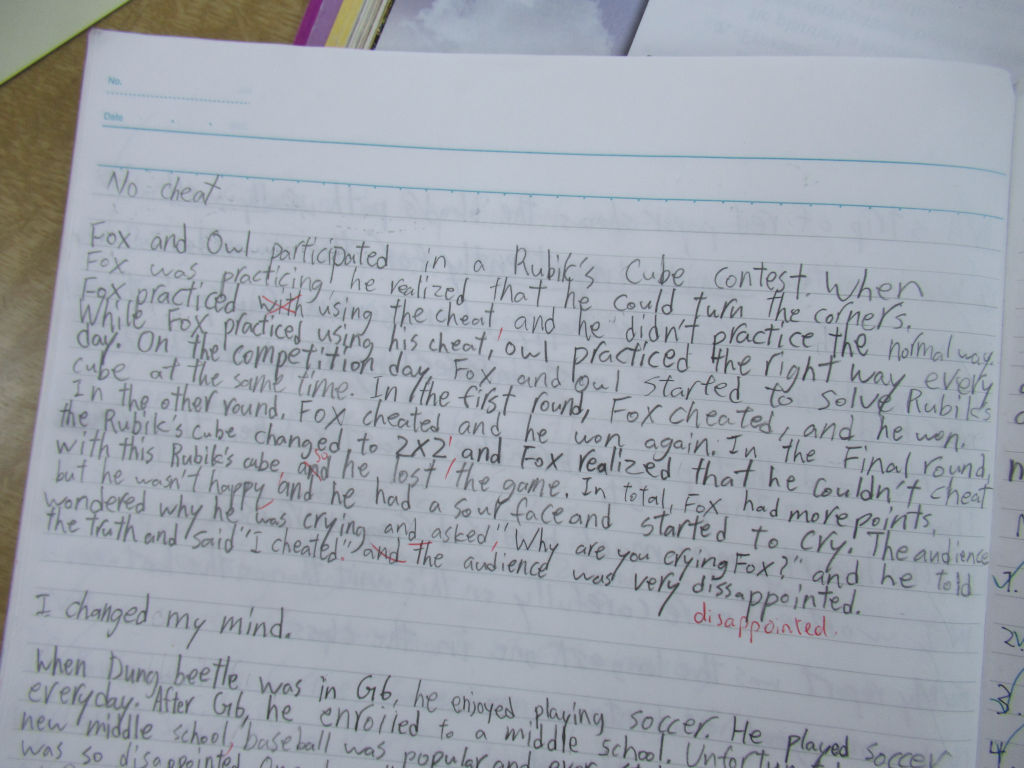 No.
Date
No cheat
Fox and Owl participated in a Rubik's Cube contest. When
Fox was practicing, he realized that he could turn the corners.
Fox practiced with using the cheat, and he didn't practice the normal way.
While Fox practiced using his cheat, owl practiced the right way every
day. On the competition day, Fox and Owl started to solve Rubik's
cube at the same time. In the first round, Fox cheated, and he won.
In the other round, Fox cheated and he won again. In the Final round,
the Rubik's cube changed to 2X2, and Fox realized that he couldn't cheat
with this Rubik's cube, and so he lost the game. In total, Fox had more points,
but he wasn't happy, and he had a sour face and started to cry. The audience
wondered why he was crying and asked, "Why are you crying Fox?" and he told
the truth and said "I cheated." and The audience was very dissappointed.
disappointed.
I changed my mind.
When Dung beetle was in G6, he enjoyed playing soccer. He played soccer
everyday. After G6, he enrolled to a middle school.
new middle school, baseball was popular and
was so disappointed